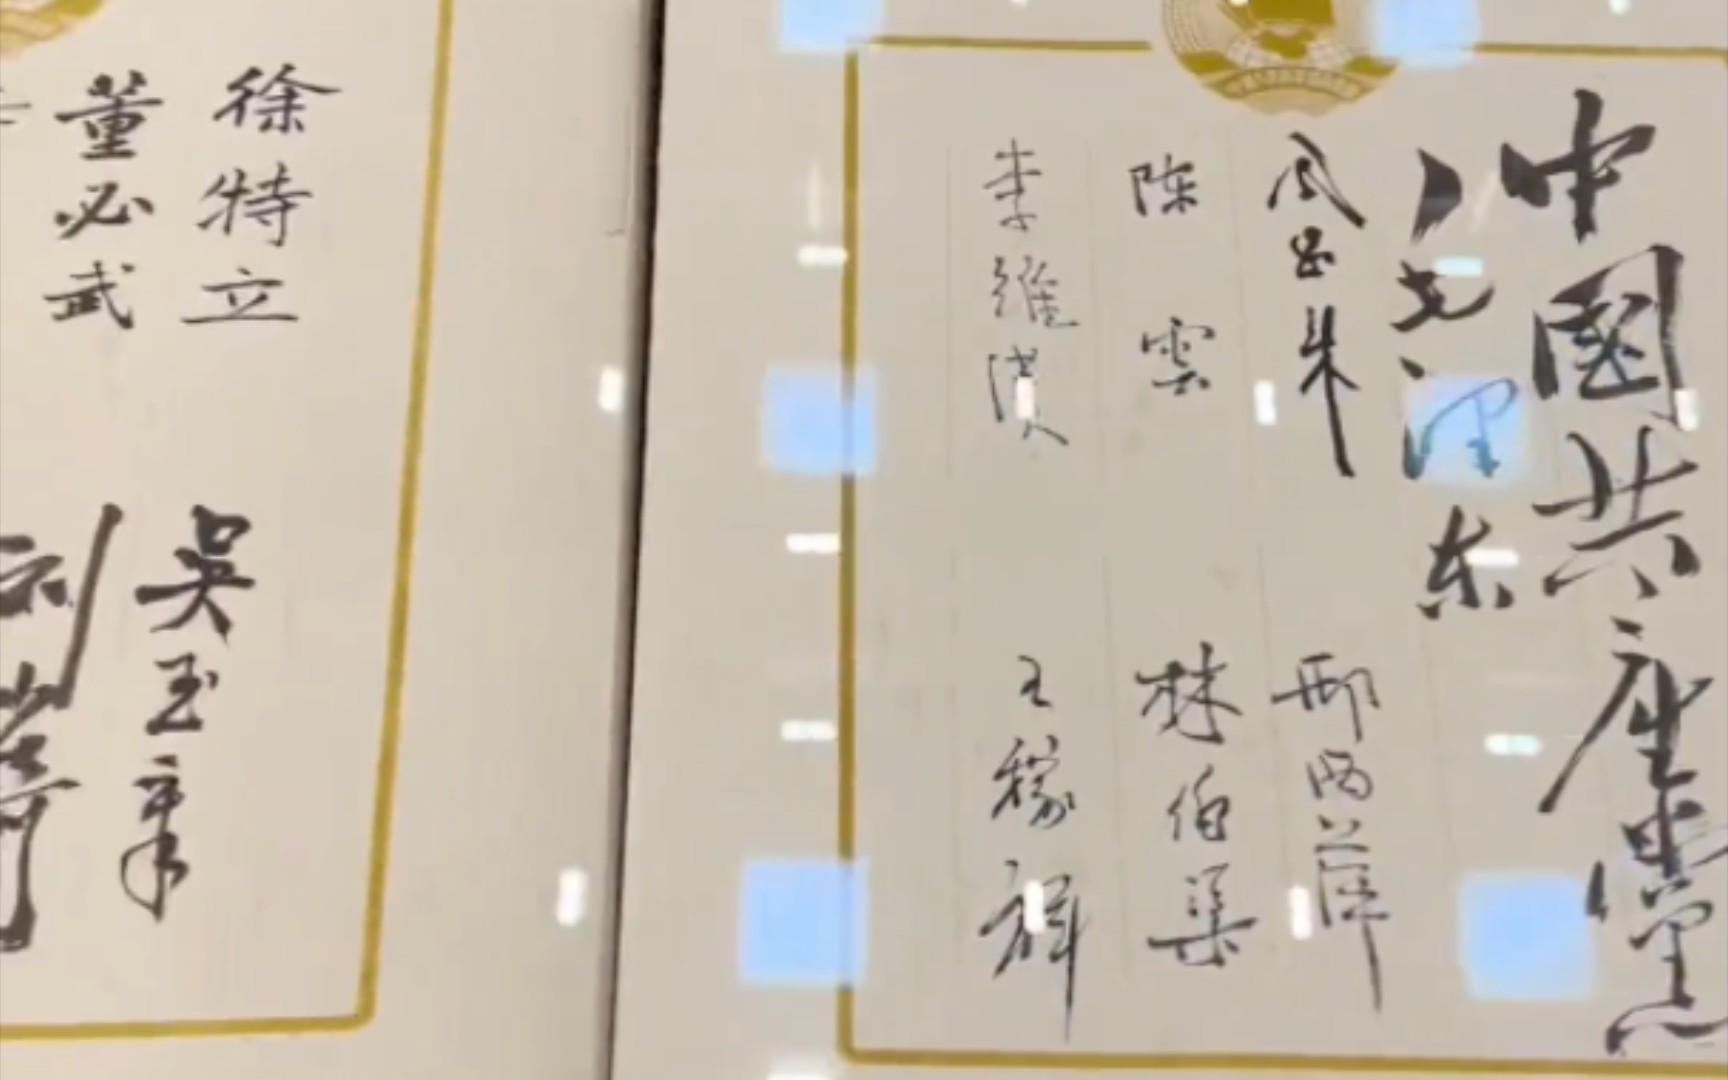 中國共産黨
毛泽东
周恩来
邢西萍
陈雲
林伯渠
李維漢
王稼祥
徐特立
吴玉章
董必武
刘少奇